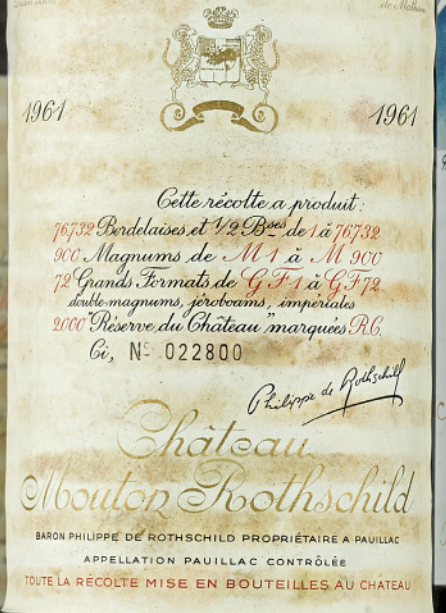 1961 1961
Cette récolte a produit:
76732 Bordelaises et 1/2 Bses de 1 à 76732
900 Magnums de M 1 à M 900
72 Grands Formats de G F 1 à G F 72
double-magnums, jéroboams, impériales
2000 "Réserve du Château" marquées R.C.
Ci, No 022800
Philippe de Rothschild
Château
Mouton Rothschild
BARON PHILIPPE DE ROTHSCHILD PROPRIÉTAIRE A PAUILLAC
APPELLATION PAUILLAC CONTRÔLÉE
TOUTE LA RÉCOLTE MISE EN BOUTEILLES AU CHÂTEAU